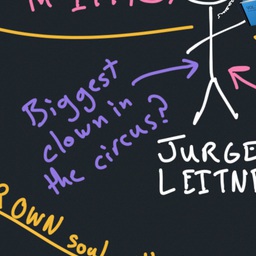 Biggest
clown in
the circus?
JURGE
LEITN
ROWN soul